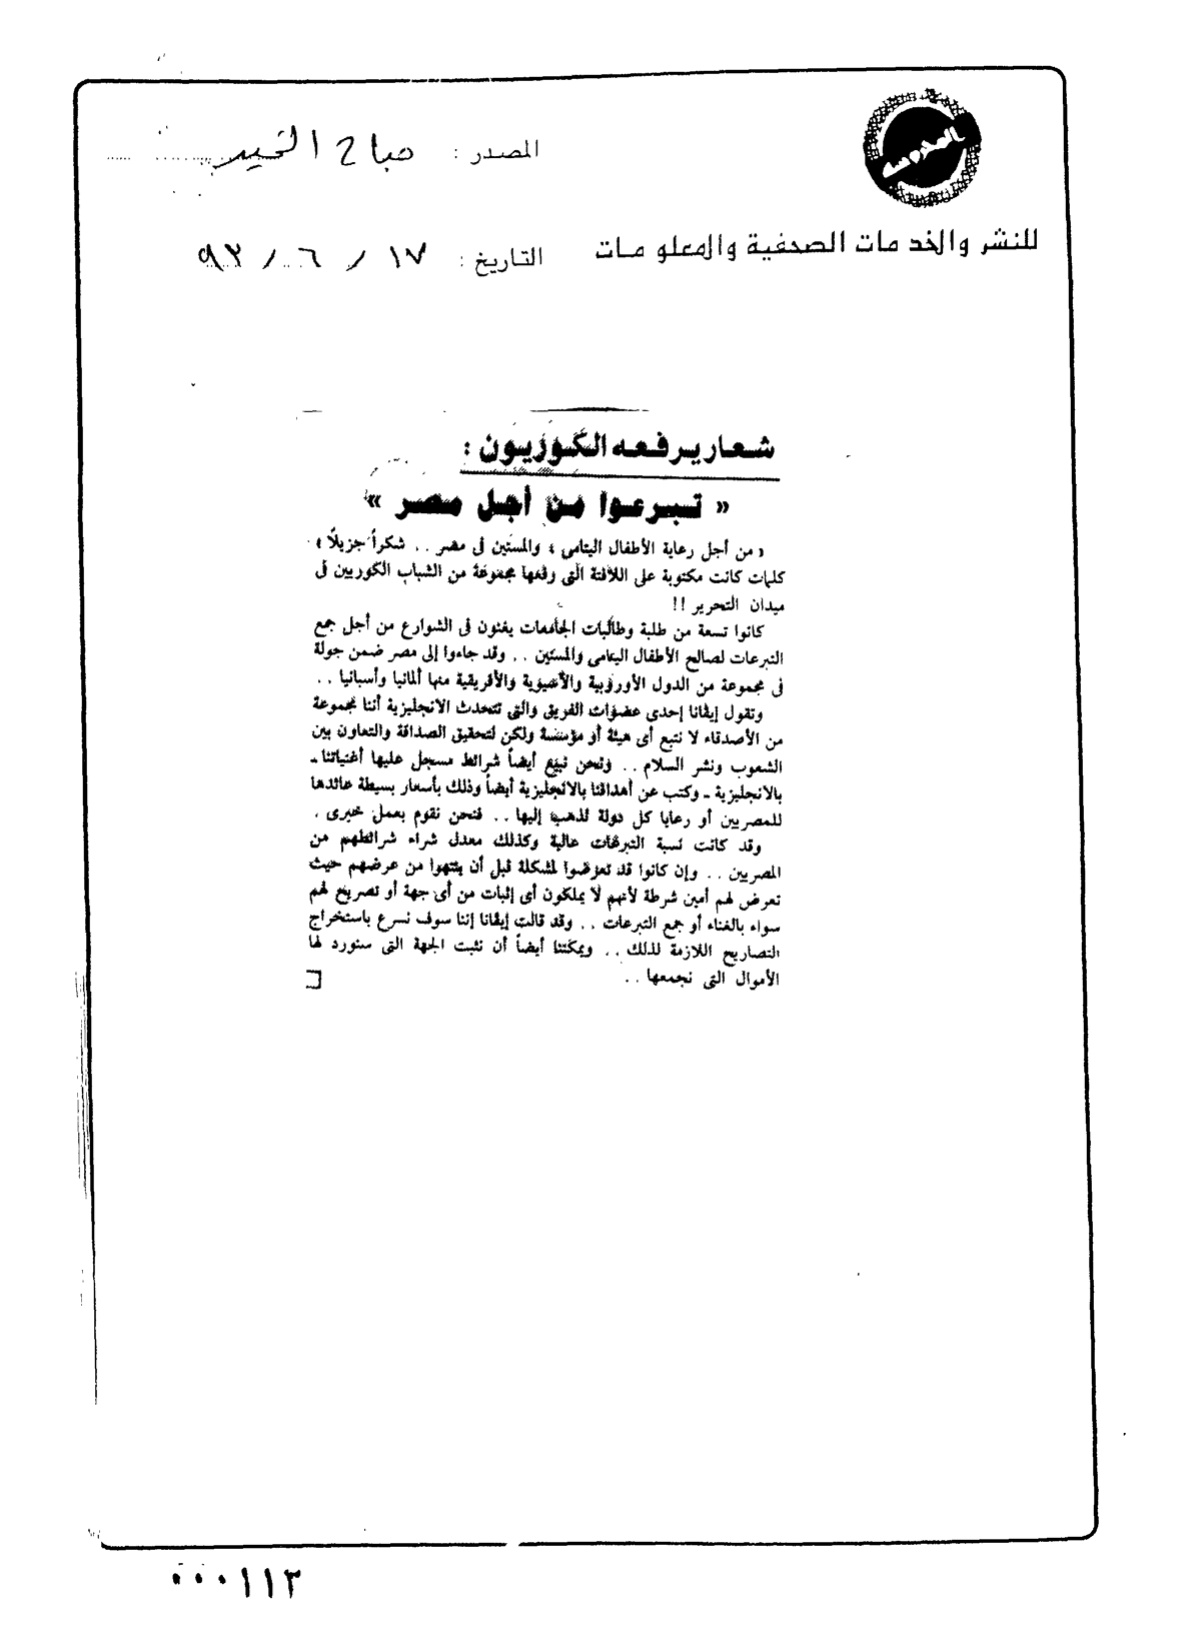 المصدر : صباح الخير
للنشر والخدمات الصحفية والمعلومات
التاريخ : ١٧ / ٦ / ٩٣
شعار يرفعه الكوريون :
« تبرعوا من أجل مصر »
« من أجل رعاية الأطفال اليتامى ، والمسنين فى مصر .. شكراً جزيلاً »
كلمات كانت مكتوبة على اللافتة التى رفعها مجموعة من الشباب الكوريين فى
ميدان التحرير !!
كانوا تسعة من طلبة وطالبات الجامعات يغنون فى الشوارع من أجل جمع
التبرعات لصالح الأطفال اليتامى والمسنين .. وقد جاءوا إلى مصر ضمن جولة
فى مجموعة من الدول الأوروبية والأسيوية والأفريقية منها ألمانيا وأسبانيا ..
وتقول إيفانا إحدى عضوات الفريق والتى تتحدث الانجليزية أننا مجموعة
من الأصدقاء لا نتبع أى هيئة أو مؤسسة ولكن لتحقيق الصداقة والتعاون بين
الشعوب ونشر السلام .. ونحن نبيع أيضاً شرائط مسجل عليها أغنياتنا ـ
بالانجليزية ـ وكتب عن أهدافنا بالانجليزية أيضاً وذلك بأسعار بسيطة عائدها
للمصريين أو رعايا كل دولة نذهب إليها .. فنحن نقوم بعمل خيرى .
وقد كانت نسبة التبرعات عالية وكذلك معدل شراء شرائطهم من
المصريين .. وإن كانوا قد تعرضوا لمشكلة قبل أن ينتهوا من عرضهم حيث
تعرض لهم أمين شرطة لأنهم لا يملكون أى إثبات من أى جهة أو تصريح لهم
سواء بالغناء أو جمع التبرعات .. وقد قالت إيفانا إننا سوف نسرع باستخراج
التصاريح اللازمة لذلك .. ويمكننا أيضاً أن نثبت الجهة التى سنورد لها
الأموال التى نجمعها ..
٠٠٠١١٣